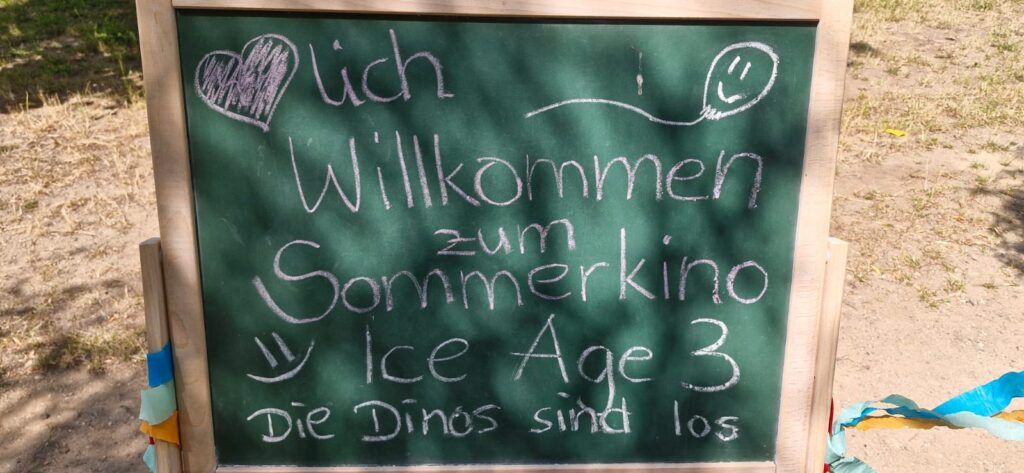 lich
Willkommen
zum
Sommerkino
Ice Age 3
Die Dinos sind los